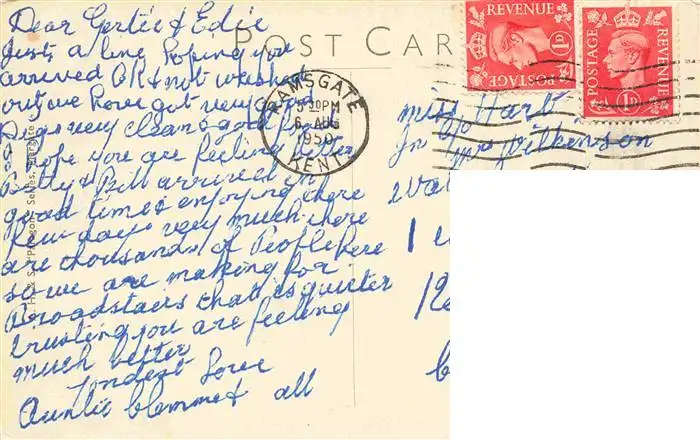 Dear Gertie & Edie
Just a line hoping you
arrived OK & not washed
out we have got very good
Digs very clean & good food
hope you are feeling better
Betty & Bill arrived in
good time & enjoying there
few days very much there
are thousands of People here
so we are making for
Broadstairs that is quieter
trusting you are feeling
much better
fondest love
Auntie & all
POST CAR
REVENUE
POSTAGE
1D
POSTAGE
REVENUE
1D
RAMSGATE
5 30PM
6 AUG
1950
KENT
Miss Hart
c/o
Mrs Wilkenson
Wa
1